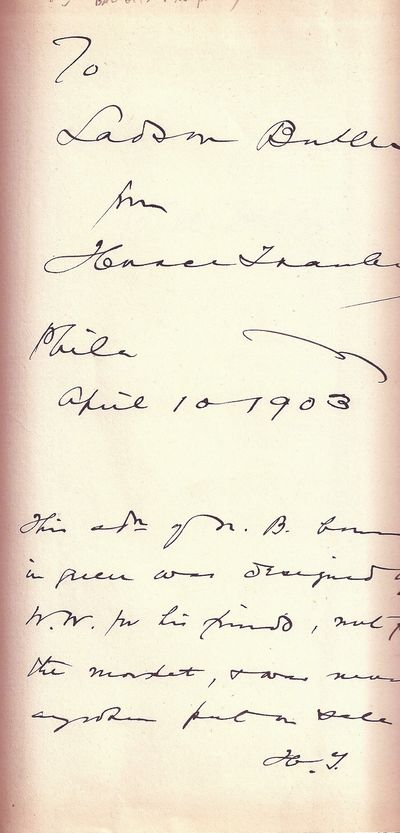 To
Ladson Butle
from
Horace Traube
Phila
April 10 1903
This edn of N. B. boun
in green was designed
W.W. for his friends, not f
the market, & was neve
anywhere put on sale
H. T.